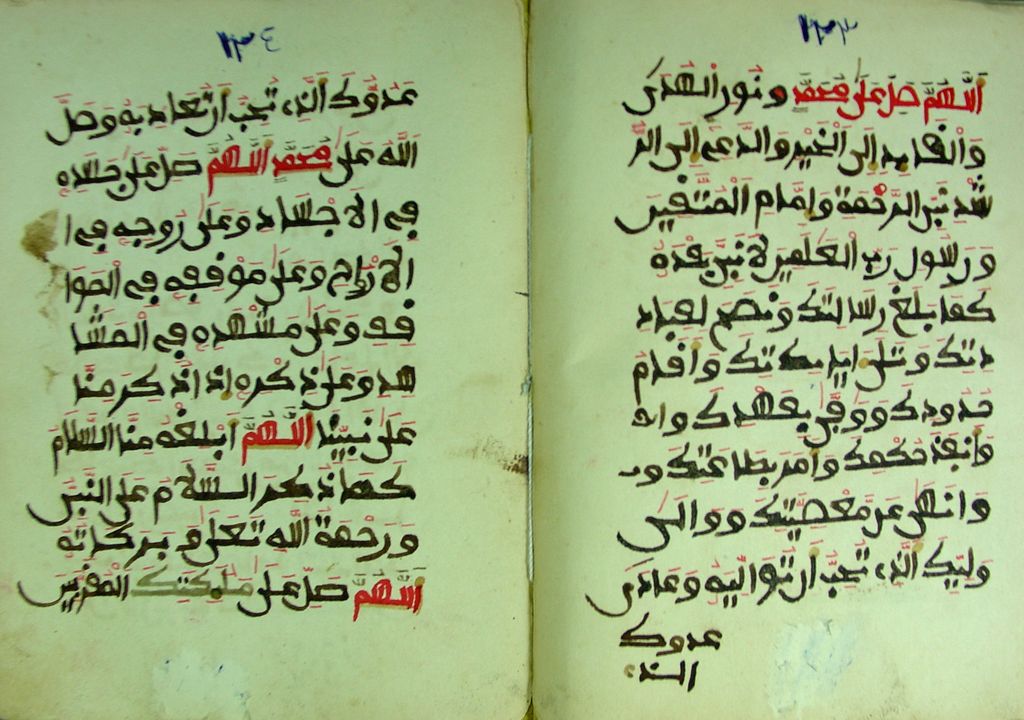 ١٣٣
اللهم صل على محمد ونور الهدى
والقايد الى الخير والداعي الى الر
شد نبي الرحمة وامام المتقين
ورسول رب العلمين لا نبي بعده
كما بلغ رسالتك ونصح لعباد
دتك وتلى ايتك واقام
حدودك ووفى بعهدك وان
وانفذ حكمك وامر بطاعتك و
وانهى عن معصيتك ووالى
وليك الذي تحب ان تواليه وعادى
عدوك
الذي
١٣٤
عدوك الذي تحب ان تعاديه وصل
الله على محمد اللهم صل على جسده
في الاجساد وعلى روحه في ا
الارواح وعلى موقفه في الموا
قف وعلى مشهده في المشا
هد وعلى ذكره اذا ذكر منا
على نبينا اللهم ابلغه منا السلام
كما ذكر السلام على النبي
ورحمة الله تعلى وبركاته
اللهم صل على ملئكتك المقربين